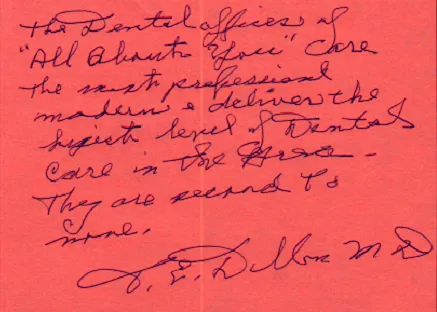 The Dental offices of
"All About You" Care
the most professional
modern & deliver the
highest level of Dental
Care in the Area.
They are second to
none.
E. D M D